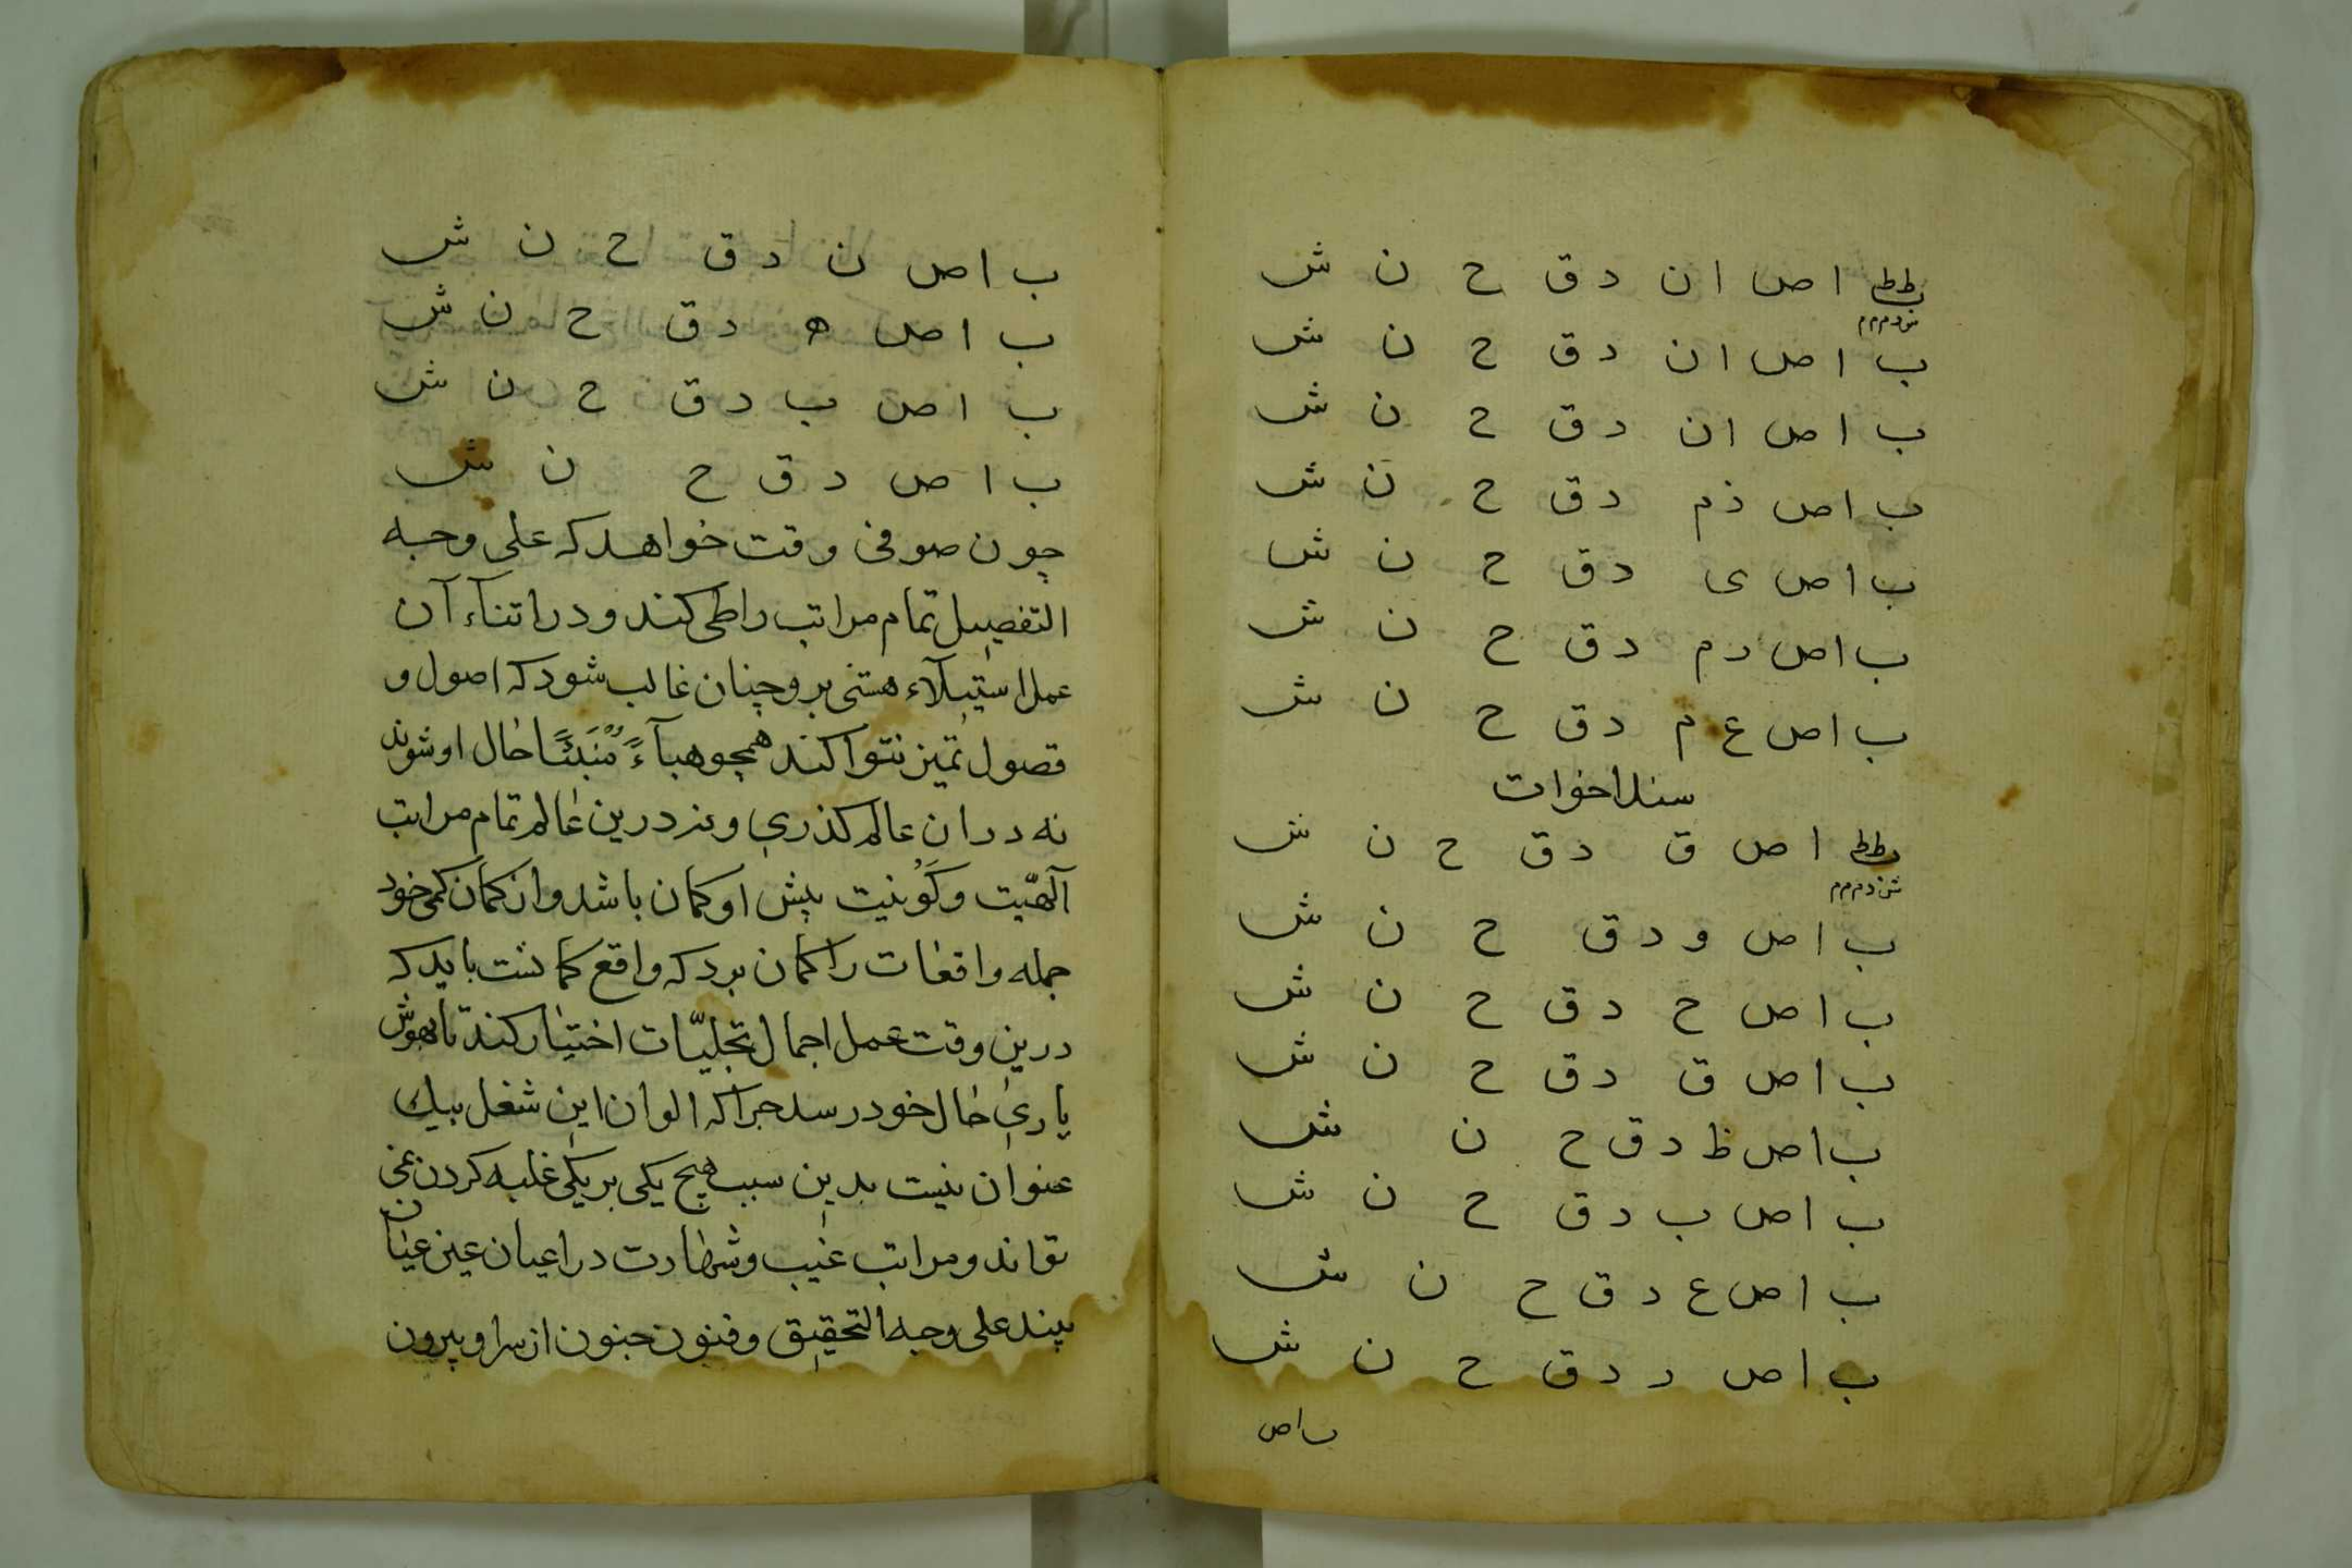 ططب ا ص ا ن د ق ح ن ش
ب ا ص ا ن د ق ح ن ش
ب ا ص ا ن د ق ح ن ش
ب ا ص ذ م د ق ح ن ش
ب ا ص ی د ق ح ن ش
ب ا ص د م د ق ح ن ش
ب ا ص ع م د ق ح ن ش
سند اخوات
ا ص ق د ق ح ن ش
ب ا ص و د ق ح ن ش
ب ا ص ح د ق ح ن ش
ب ا ص ق د ق ح ن ش
ب ا ص ظ د ق ح ن ش
ب ا ص ب د ق ح ن ش
ب ا ص ع د ق ح ن ش
ب ا ص ر د ق ح ن ش
ب ا ص
ب ا ص ن د ق ح ن ش
ب ا ص ه د ق ح ن ش
ب ا ص ب د ق ح ن ش
ب ا ص د ق ح ن ش
چون صوفی وقت خواهد که علی وجه
التفصیل تمام مراتب را طی کند و در اثنآء آن
عمل استیلآء هستی برو چنان غالب شود که اصول و
فصول تمیز نتوا کند همچو هبآءً مُنْبَثًّا حال او شوند
نه در ان عالم کذری و نه درین عالم تمام مراتب
آلهیّت و کَوْنیت پیش او کمان باشد و از کمان کمی خود
جمله واقعات را کمان برد که واقع کما نست باید که
درین وقت عمل اجمال تجلیّات اختیار کند تا بهوش
یاری حال خود رسد چرا که الوان این شغل بیك
عنوان نیست بدین سبب هیچ یکی بر یکی غلبه کردن نمی
تواند و مراتب غیب و شهادت در اعیان عین عیان
بیند علی وجه التحقیق و فنون جنون از سر او بیرون